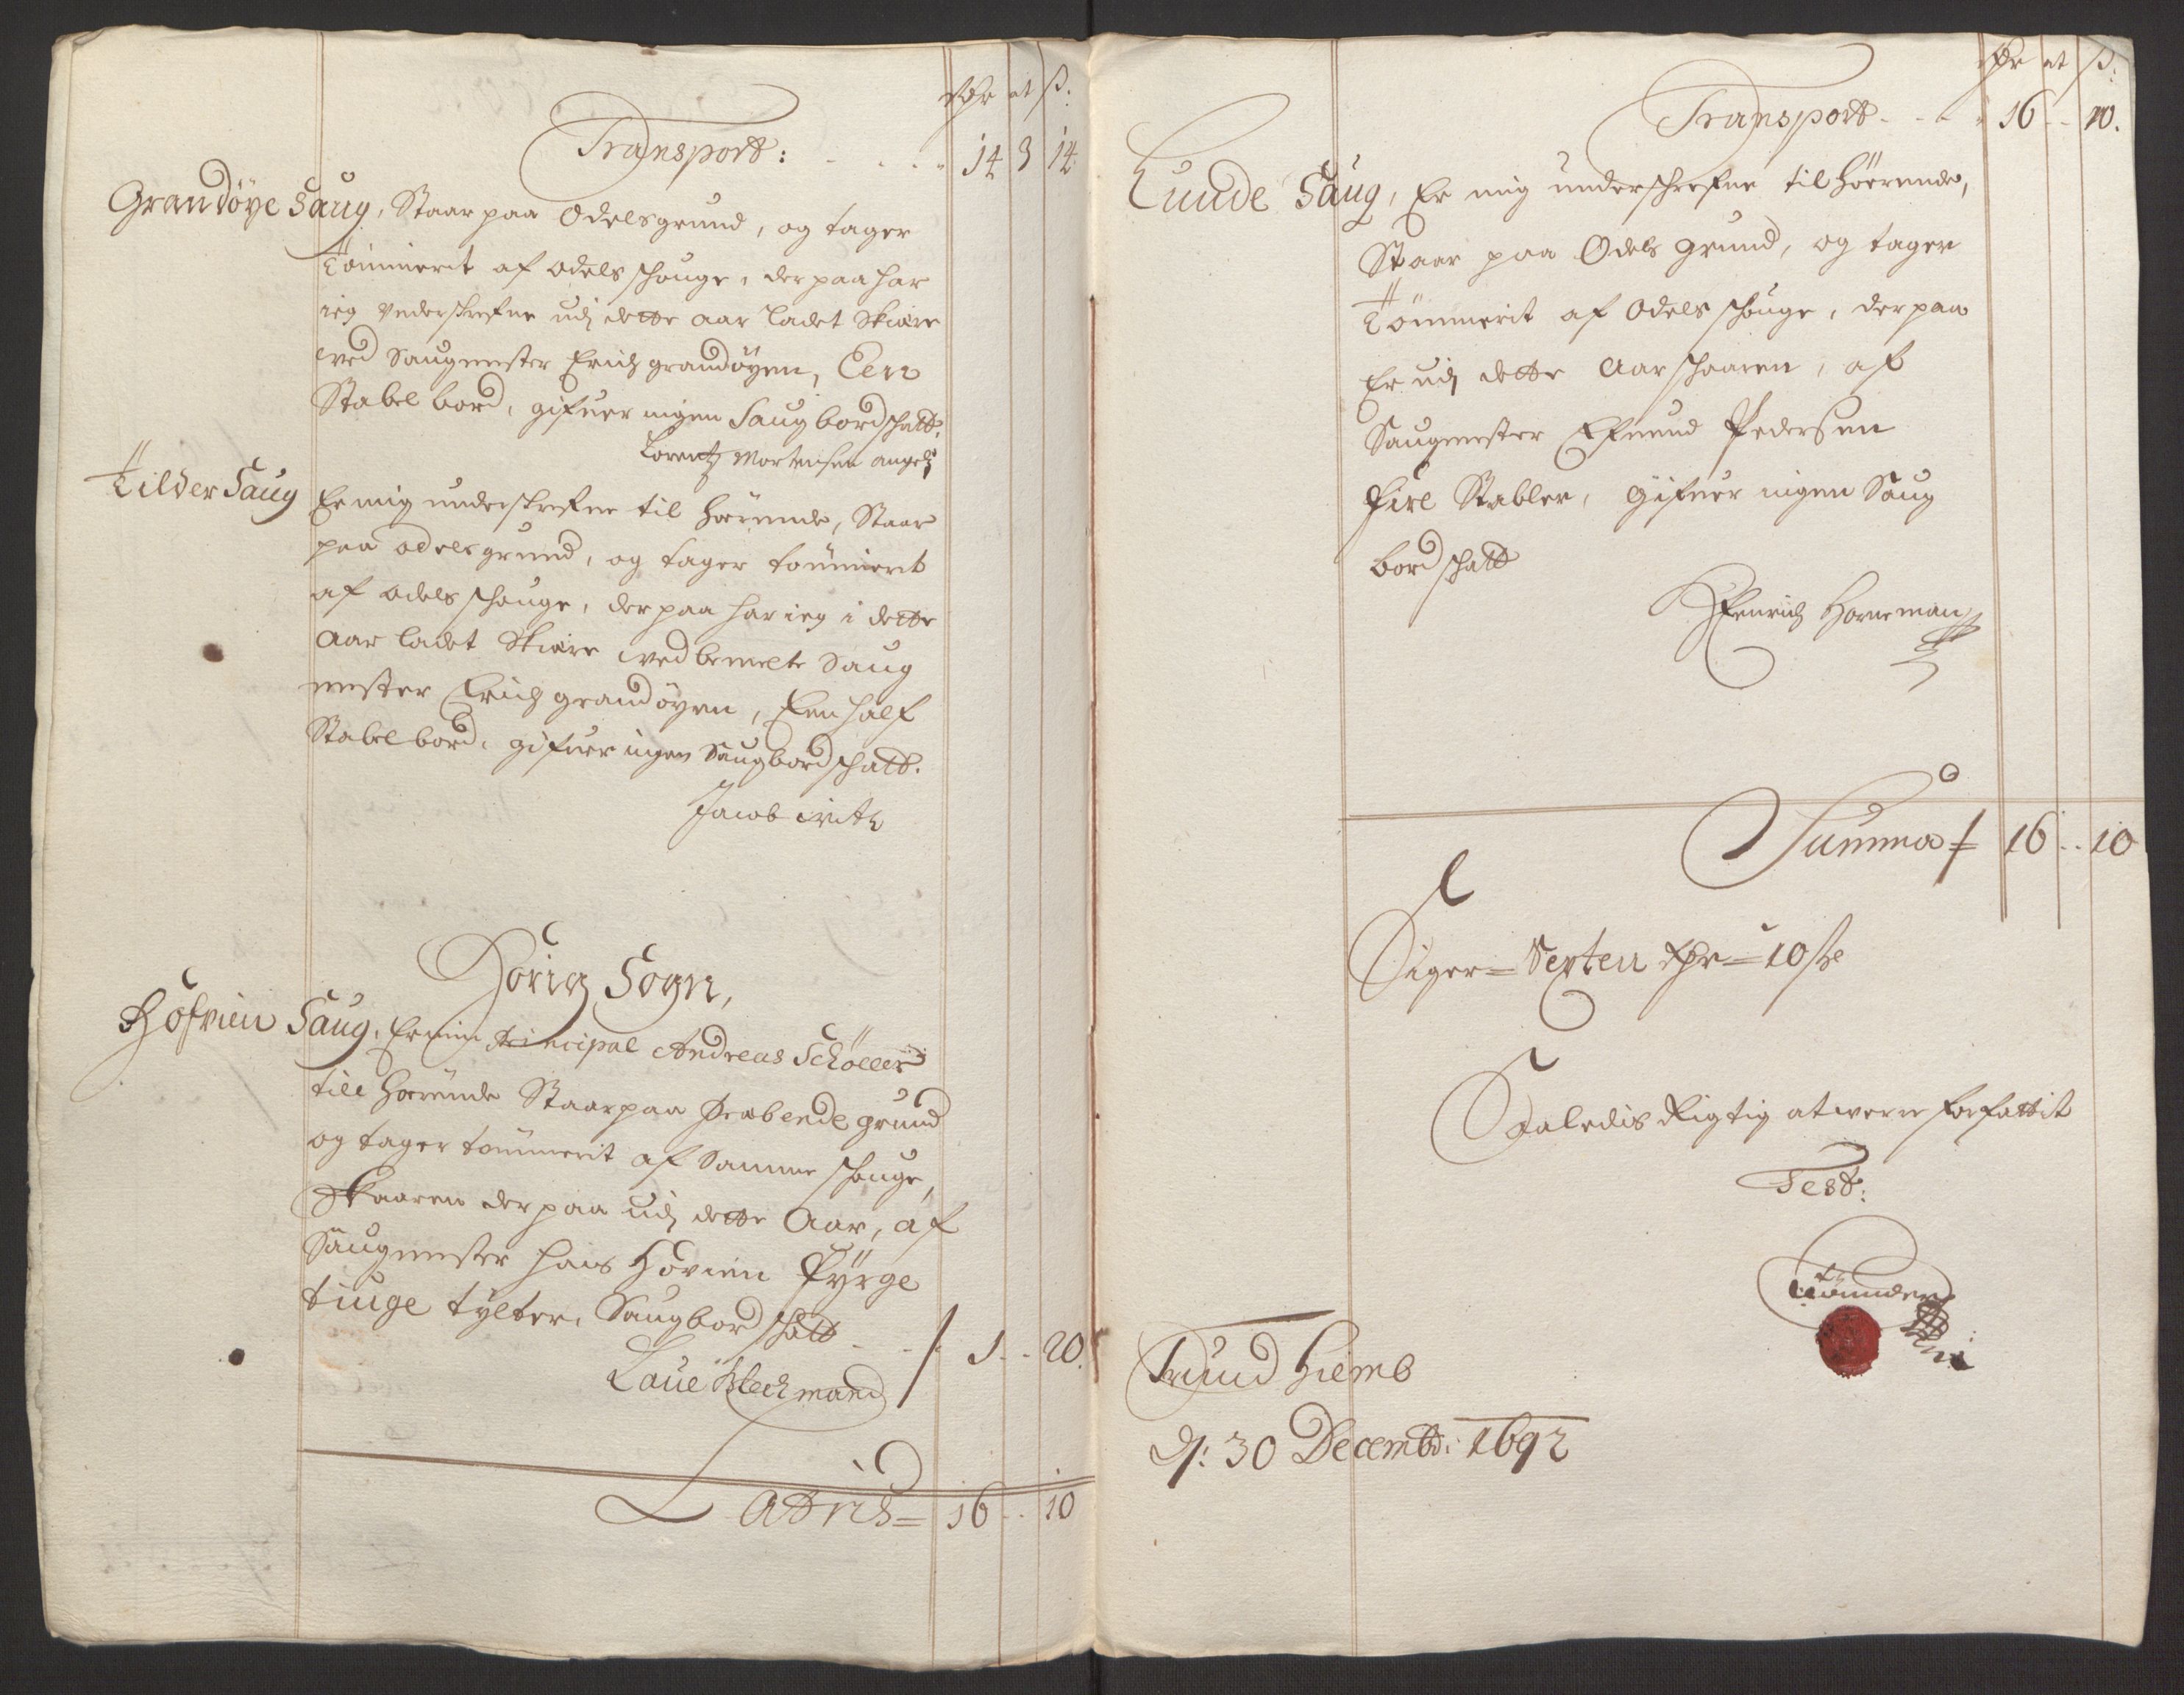 Rdr ort ß.
Transport: 14 3 14
Grandöye Saug, Staar paa Odelsgrund, og tager
tömmerit af odels schouge, der paa har
ieg underskrefne udj dette aar ladet Skiære
ved Saugmester Erich grandöyen, Een
Stabel bord, gifuer ingen Saugbordschatt.
Lorentz Mortensen angel
Tilder Saug
Er mig underskrefne til hörende, Staar
paa odelsgrund, og tager tömmerit
af odels schouge, der paa har ieg i dette
Aar ladet Skiære ved bemelte Saug
mester Erich grandöyen, Een half
Stabel bord, gifuer ingen Saugbordschatt.
Jacob
Börig Sogn,
Höfrien Saug. Er min Principal Andreas Schöller
till hörende Staar paa Præbende grund
og tager tömmerit af Samme schouge,
Skaaren der paa udj dette Aar, af
Saugmester hans Hovien Fyrge
tiuge tylter, Saugbord schatt - - 1 - - 20.
Laue Bleckmand
Latris = 16 - - 10
Rdr ort ß:
Transport - - - 16 - - 10.
Lunde Saug, Er mig underschrefne til hörende,
Staar paa Odels grund, og tager
Tömmerit af Odels schouge, der paa
Er udj dette Aar schaaren, af
Saugmester Efuend Pedersen
fire Stabler, gifuer ingen Saug
bord schatt
Henrich Horneman
Summa 16 - - 10
Siger = Sexten Rdr = 10 ske
Saaledis Rigtig at were forfattit
Test:
Trund hiemb
d: 30 Decembr: 1692